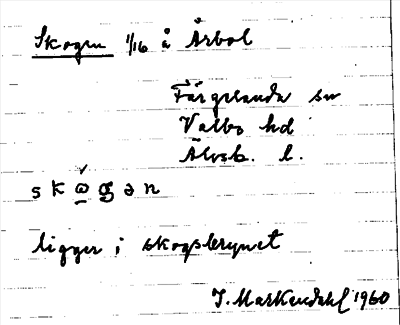 Skogen 1/16 å Årbol
Färgelanda sn
Valbo hd
Älvsb. l.
skω̲gən
ligger i skogsbrynet
J. Markendahl 1960